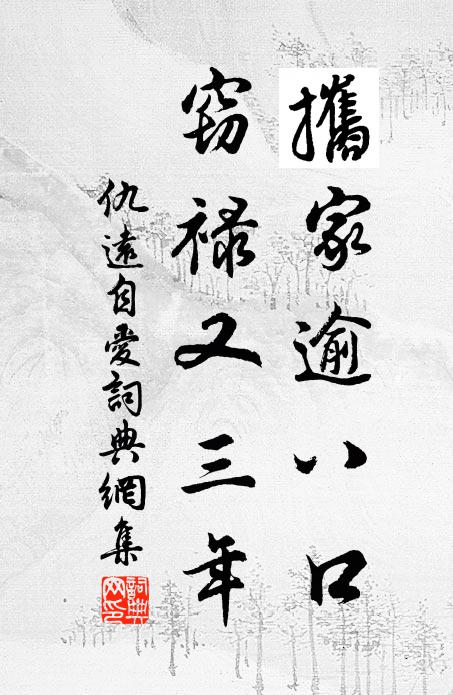 攜家逾八口
竊禄又三年
仇遠自愛詞典網集
詞典網印